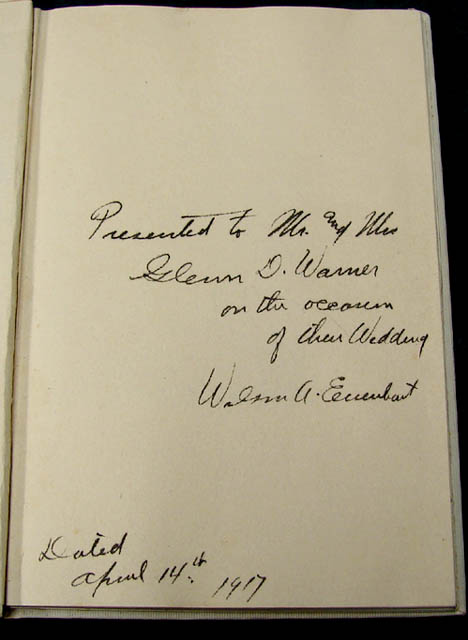 Presented to Mr. and Mrs
Glenn D. Warner
on the occasion
of their Wedding
A.
Dated
April 14th 1917